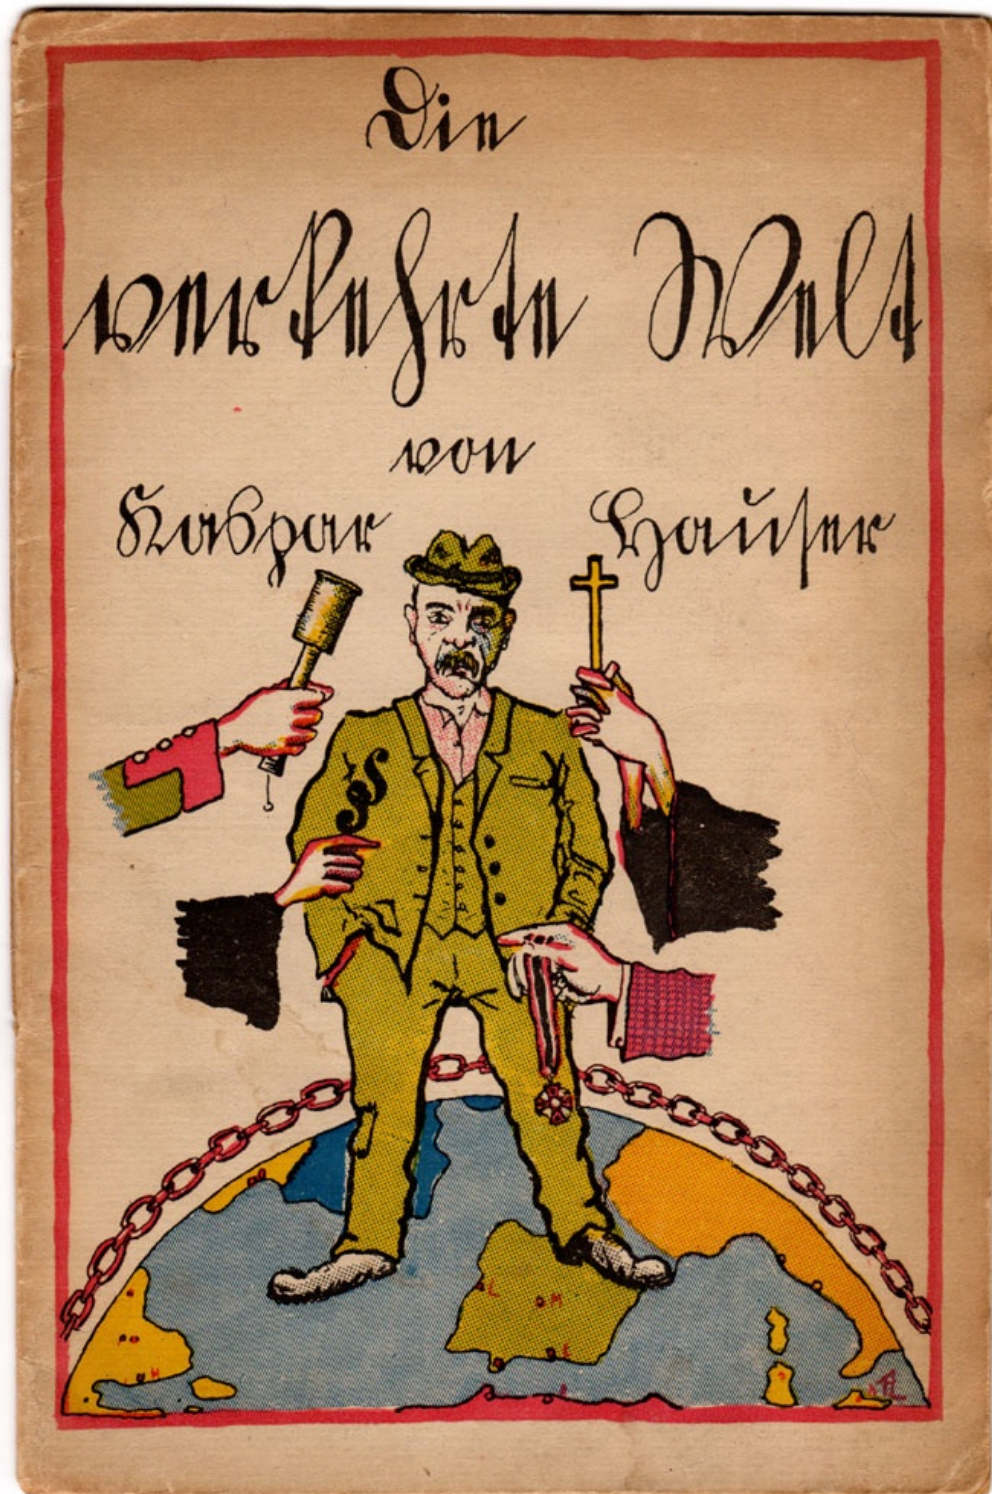 Die
verkehrte Welt
von
Kaspar Hauser
§
L
M